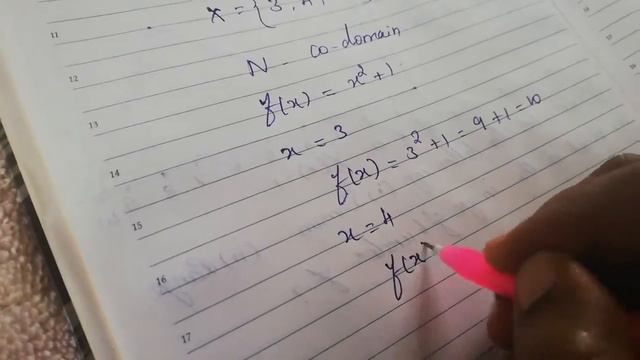 x = {3, 4
11
N - co-domain
12
f(x) = x² + 1
13
x = 3
14
f(x) = 3² + 1 = 9 + 1 = 10
15
x = 4
16
f(x
17